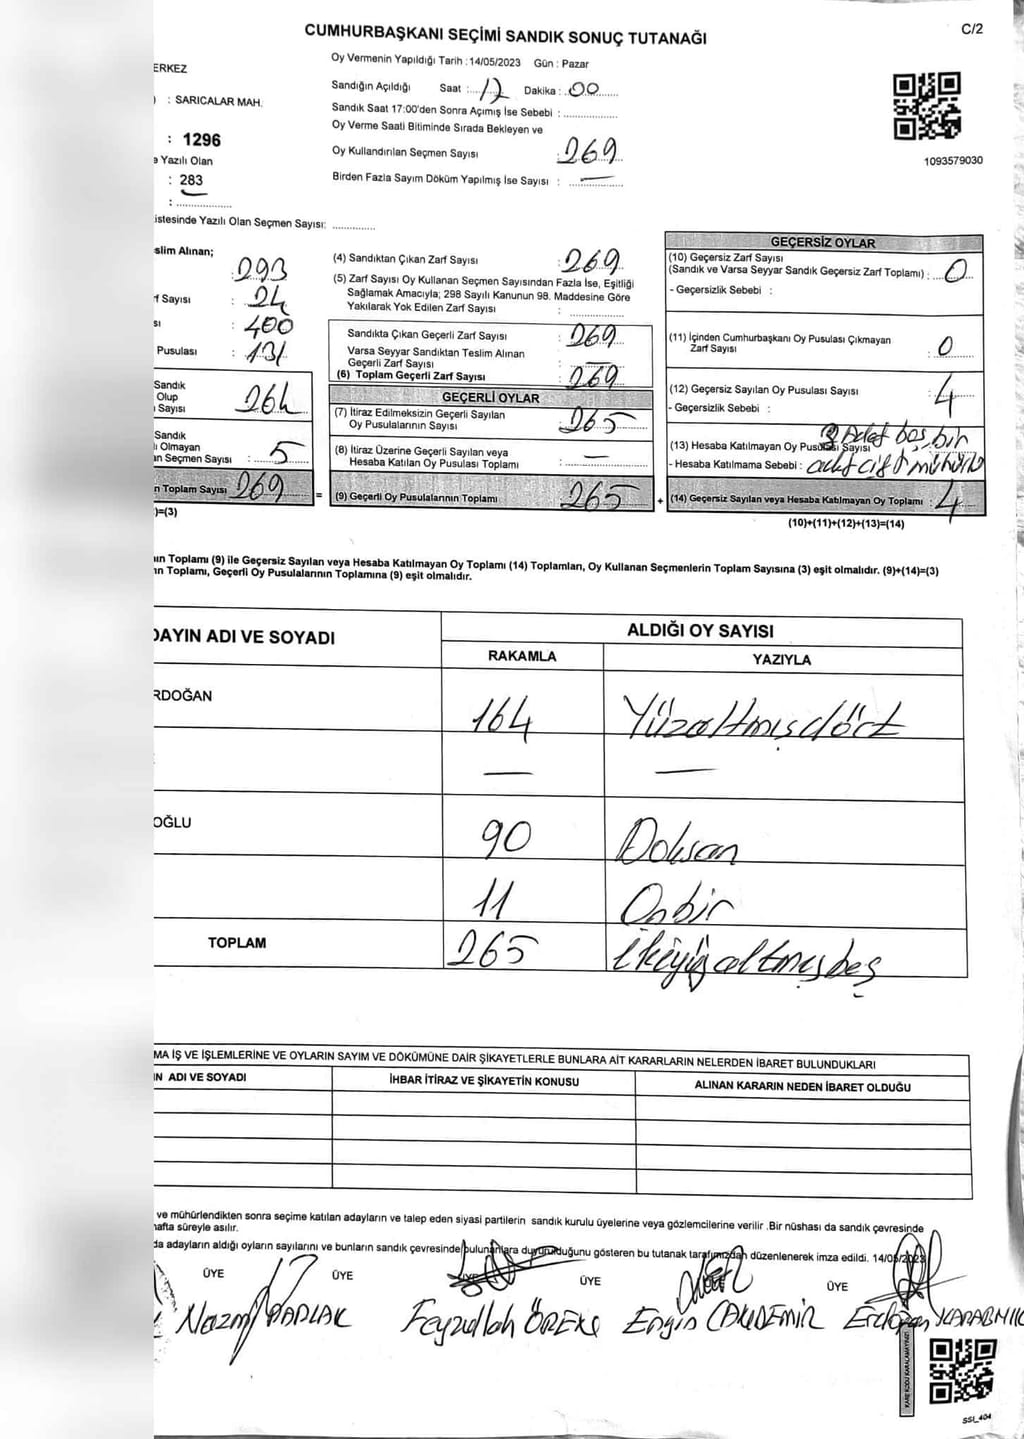 CUMHURBAŞKANI SEÇİMİ SANDIK SONUÇ TUTANAĞI
C/2
Oy Vermenin Yapıldığı Tarih :14/05/2023 Gün : Pazar
ERKEZ
Sandığın Açıldığı Saat :17 Dakika : 00
) : SARICALAR MAH.
Sandık Saat 17:00'den Sonra Açımış İse Sebebi :
Oy Verme Saati Bitiminde Sırada Bekleyen ve
: 1296
Oy Kullandırılan Seçmen Sayısı : 269
1093579030
e Yazılı Olan
: 283
Birden Fazla Sayım Döküm Yapılmış İse Sayısı : —
istesinde Yazılı Olan Seçmen Sayısı:
slim Alınan;
293
ıf Sayısı : 24
sı : 400
Pusulası : 131
Sandık
Olup
ı Sayısı 264
Sandık
lı Olmayan
an Seçmen Sayısı : 5
n Toplam Sayısı 269 =
)=(3)
(4) Sandıktan Çıkan Zarf Sayısı : 269
(5) Zarf Sayısı Oy Kullanan Seçmen Sayısından Fazla İse, Eşitliği
Sağlamak Amacıyla; 298 Sayılı Kanunun 98. Maddesine Göre
Yakılarak Yok Edilen Zarf Sayısı :
Sandıkta Çıkan Geçerli Zarf Sayısı : 269
Varsa Seyyar Sandıktan Teslim Alınan
Geçerli Zarf Sayısı : —
(6) Toplam Geçerli Zarf Sayısı : 269
GEÇERLİ OYLAR
(7) İtiraz Edilmeksizin Geçerli Sayılan
Oy Pusulalarının Sayısı : 265
(8) İtiraz Üzerine Geçerli Sayılan veya
Hesaba Katılan Oy Pusulası Toplamı : —
(9) Geçerli Oy Pusulalarının Toplamı : 265 +
GEÇERSİZ OYLAR
(10) Geçersiz Zarf Sayısı
(Sandık ve Varsa Seyyar Sandık Geçersiz Zarf Toplamı) : 0
- Geçersizlik Sebebi :
(11) İçinden Cumhurbaşkanı Oy Pusulası Çıkmayan
Zarf Sayısı : 0
(12) Geçersiz Sayılan Oy Pusulası Sayısı : 4
- Geçersizlik Sebebi :
(13) Hesaba Katılmayan Oy Pusulası Sayısı 3 Adet boş, bir
- Hesaba Katılmama Sebebi : adet çift mühürlü
(14) Geçersiz Sayılan veya Hesaba Katılmayan Oy Toplamı : 4
(10)+(11)+(12)+(13)=(14)
ın Toplamı (9) ile Geçersiz Sayılan veya Hesaba Katılmayan Oy Toplamı (14) Toplamları, Oy Kullanan Seçmenlerin Toplam Sayısına (3) eşit olmalıdır. (9)+(14)=(3)
ın Toplamı, Geçerli Oy Pusulalarının Toplamına (9) eşit olmalıdır.
DAYIN ADI VE SOYADI
ALDIĞI OY SAYISI
RAKAMLA YAZIYLA
RDOĞAN 164 Yüzaltmışdört
— —
OĞLU 90 Doksan
11 Onbir
TOPLAM 265 İkiyüzaltmışbeş
MA İŞ VE İŞLEMLERİNE VE OYLARIN SAYIM VE DÖKÜMÜNE DAİR ŞİKAYETLERLE BUNLARA AİT KARARLARIN NELERDEN İBARET BULUNDUKLARI
IN ADI VE SOYADI İHBAR İTİRAZ VE ŞİKAYETİN KONUSU ALINAN KARARIN NEDEN İBARET OLDUĞU
ve mühürlendikten sonra seçime katılan adayların ve talep eden siyasi partilerin sandık kurulu üyelerine veya gözlemcilerine verilir .Bir nüshası da sandık çevresinde
hafta süreyle asılır.
da adayların aldığı oyların sayılarını ve bunların sandık çevresinde bulunanlara duyurulduğunu gösteren bu tutanak tarafımızdan düzenlenerek imza edildi. 14/05/2023
ÜYE ÜYE ÜYE ÜYE ÜYE
Nazmi PARLAK Feyzullah Engin CAN DEMİR Erdoğan
KARE KODU KARALAMAYINIZ!
SSI_404